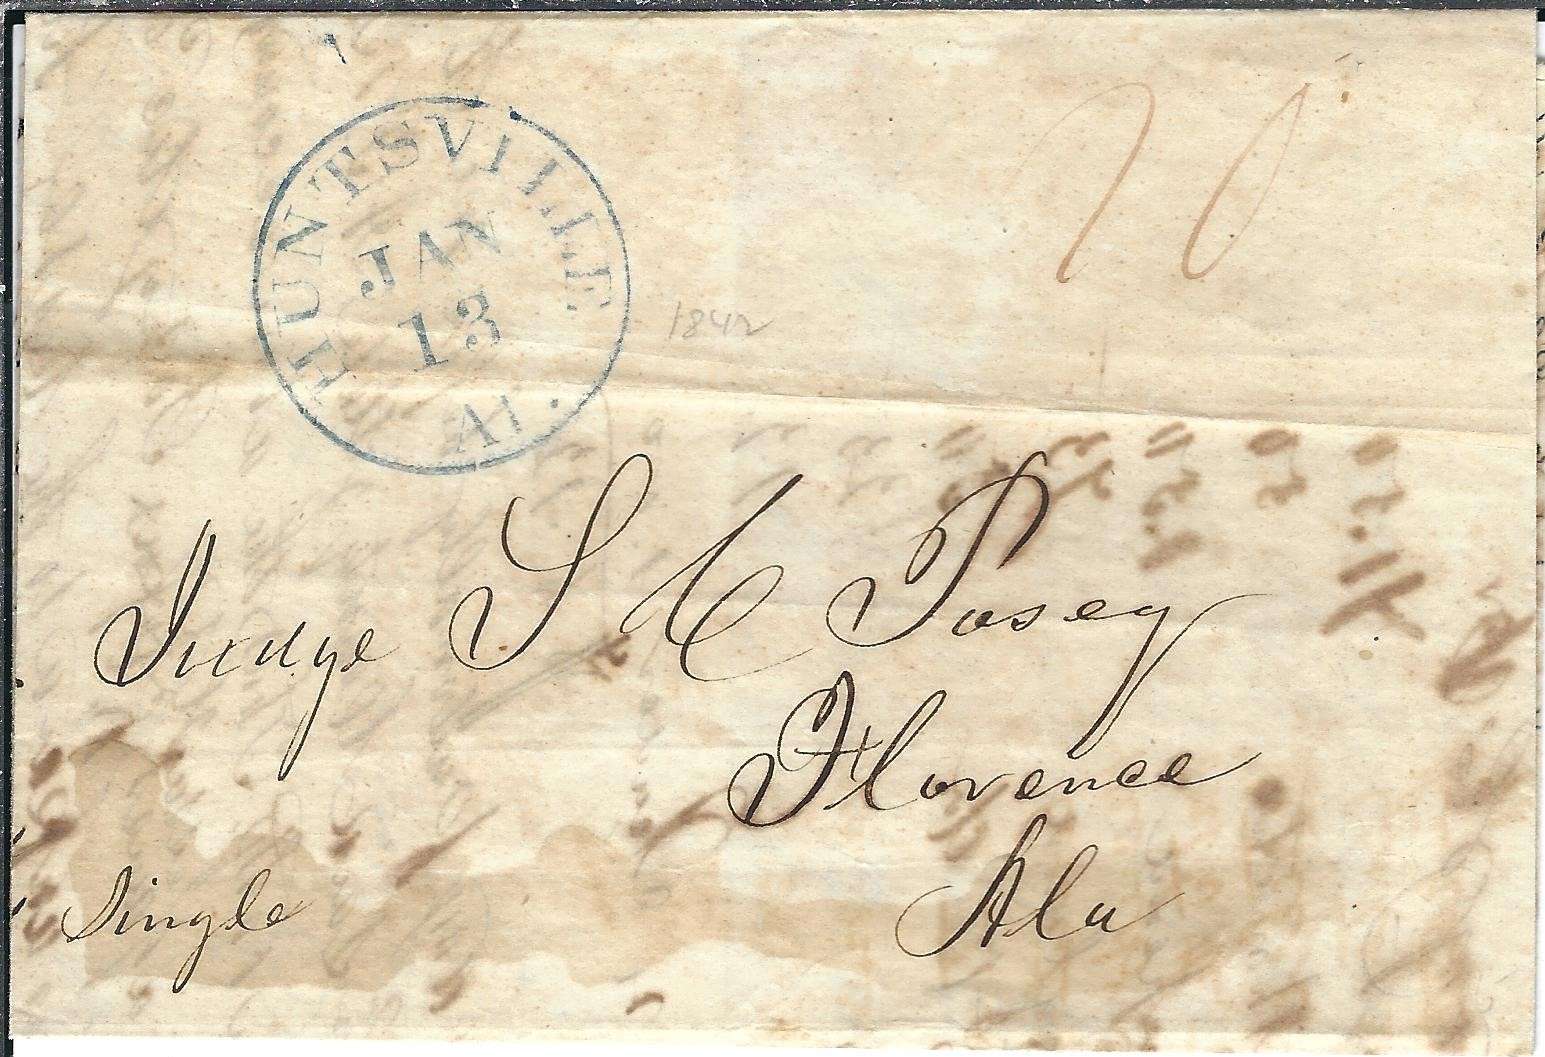 HUNTSVILLE
JAN
13
Al.
10
1842
Judge S C Posey
Florence
Ala
Single